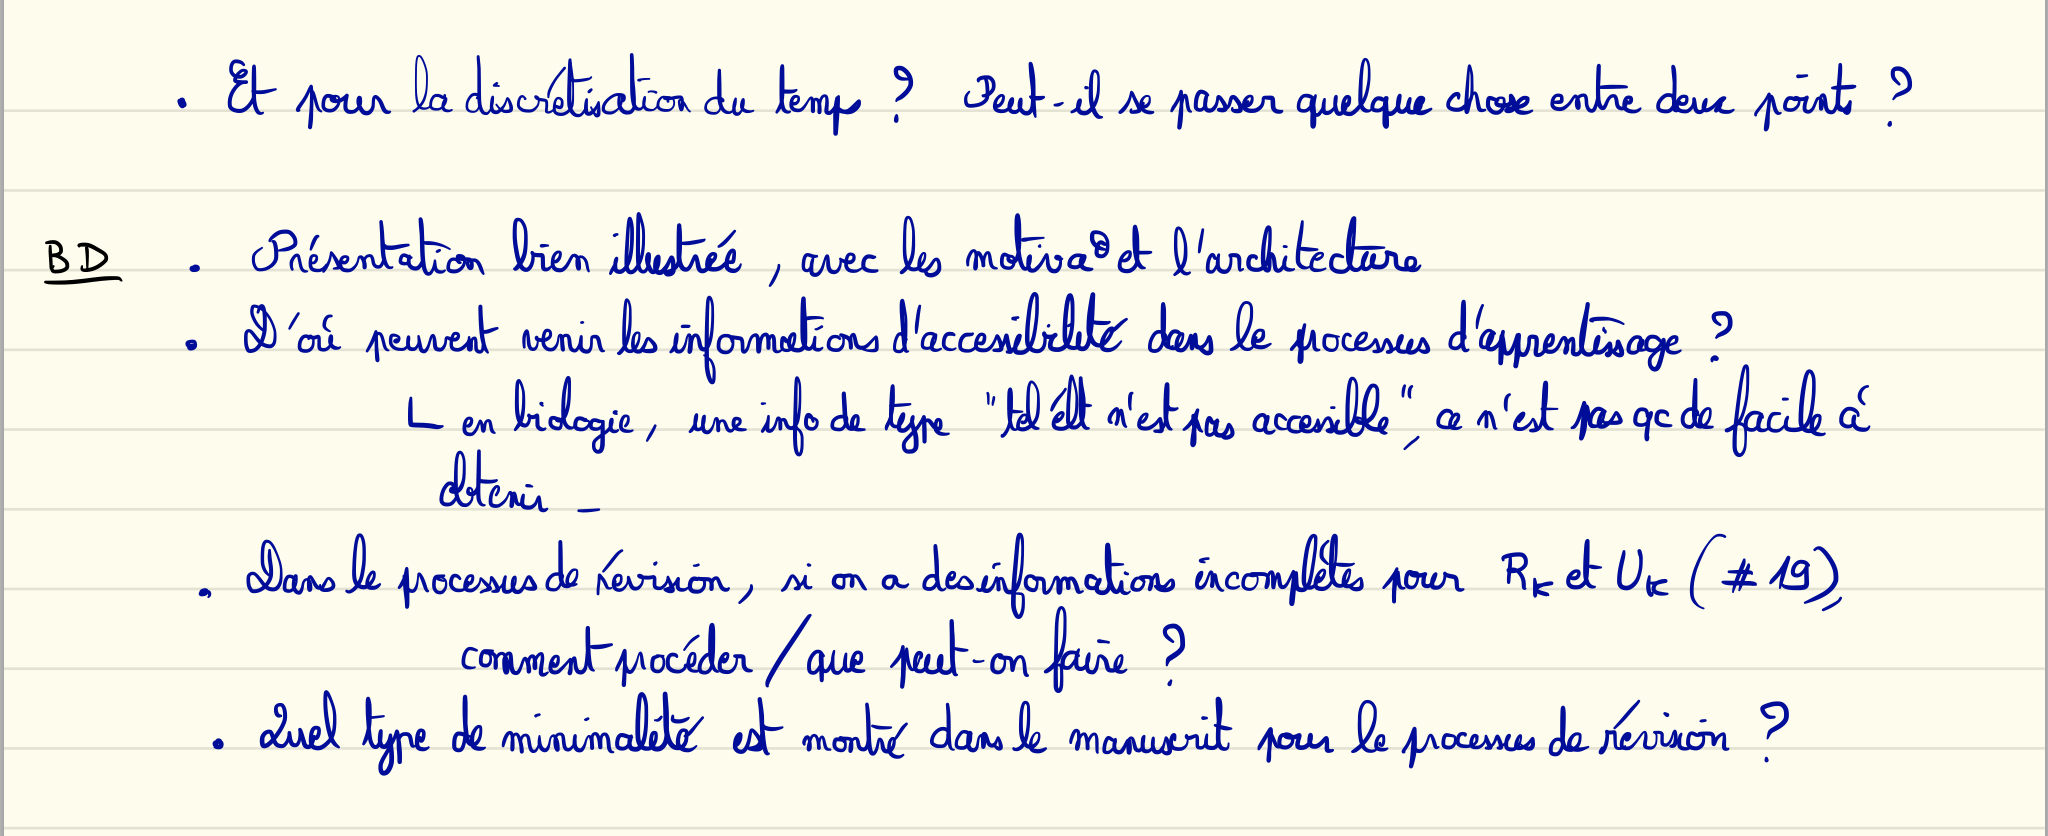 . Et pour la discrétisation du temps ? Peut-il se passer quelque chose entre deux points ?
BD . Présentation bien illustrée, avec les motiva° et l'architecture
. D'où peuvent venir les informations d'accessibilité dans le processus d'apprentissage ?
↳ en biologie, une info de type "tel élt n'est pas accessible", ce n'est pas qc de facile à
obtenir _
. Dans le processus de révision, si on a des informations incomplètes pour Rk et Uk (# 19),
comment procéder / que peut-on faire ?
. Quel type de minimalité est montré dans le manuscrit pour le processus de révision ?